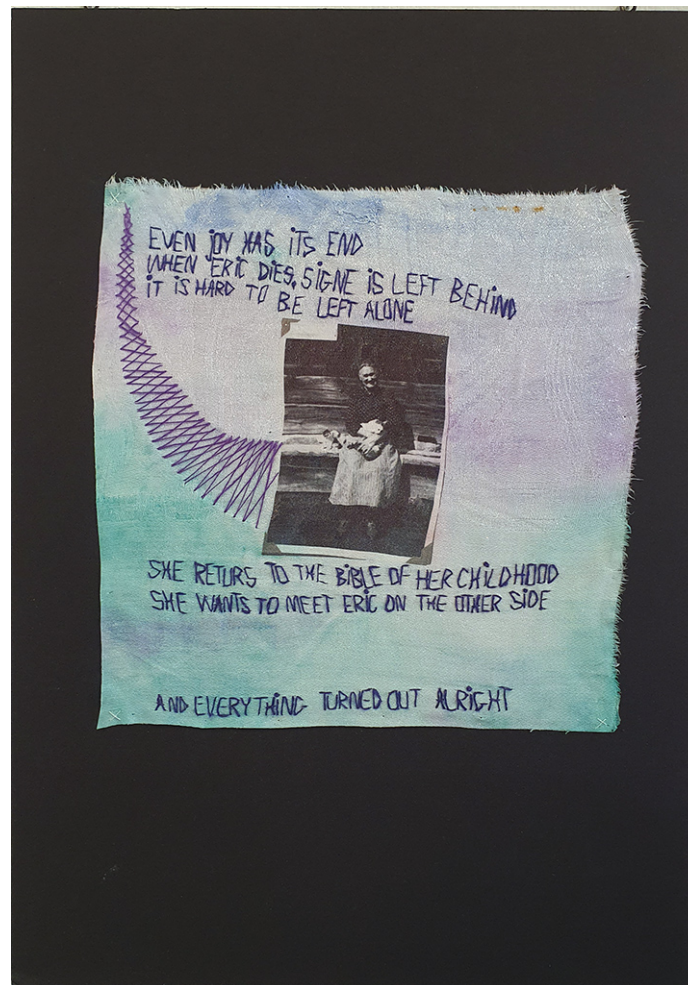 EVEN JOY HAS ITS END
WHEN ERIC DIES, SIGNE IS LEFT BEHIND
IT IS HARD TO BE LEFT ALONE
SHE RETURS TO THE BIBLE OF HER CHILDHOOD
SHE WANTS TO MEET ERIC ON THE OTHER SIDE
AND EVERYTHING TURNED OUT ALRIGHT